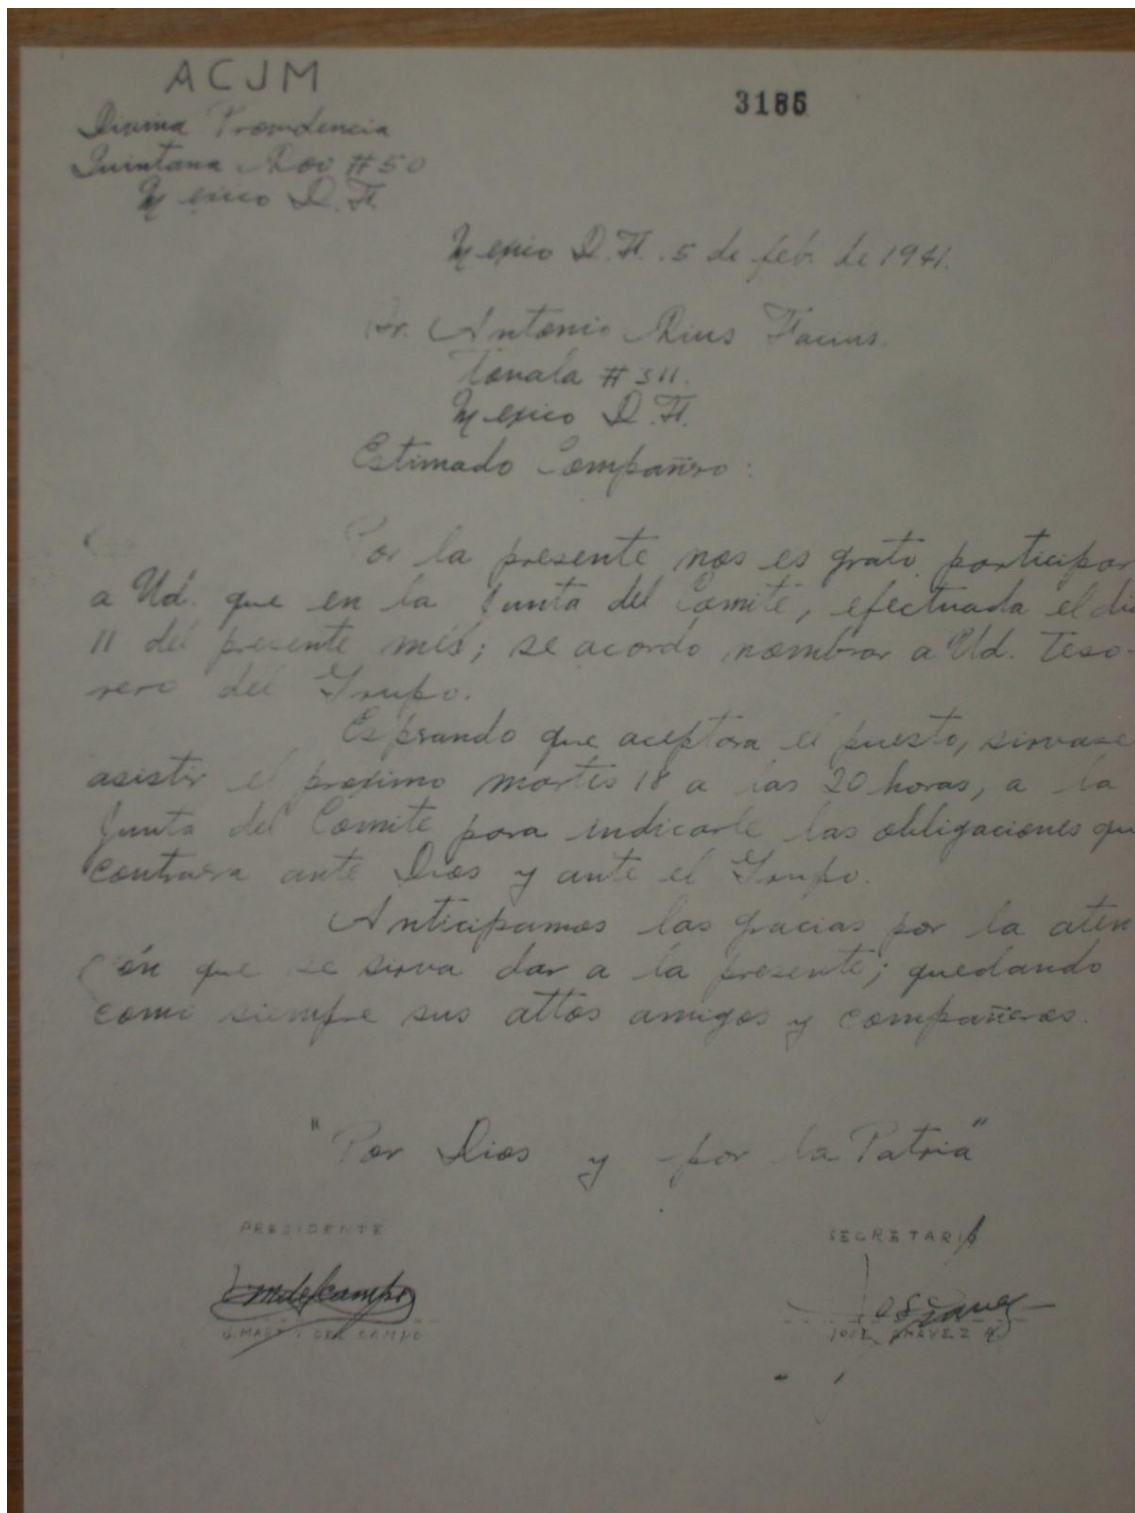 ACJM
3186
Divina Providencia
Quintana Roo #50
Mexico D.F.
Mexico D.F. 5 de feb. de 1941.
Sr. Antonio Rius Facius.
Tonala # 311.
Mexico D.F.
Estimado Compañero:
Por la presente nos es grato participar
a Ud. que en la Junta del Comité, efectuada el dia
11 del presente mes; se acordo nombrar a Ud. Teso-
rero del Grupo.
Esperando que aceptara el puesto, sirvase
asistir el proximo martes 18 a las 20 horas, a la
Junta del Comite para indicarle las obligaciones qu
contraera ante Dios y ante el Grupo.
Anticipamos las gracias por la aten
ción que se sirva dar a la presente; quedando
como siempre sus attos amigos y compañeros.
"Por Dios y por la Patria"
PRESIDENTE
SECRETARIO
DEL CAMPO
JOSE CHAVEZ